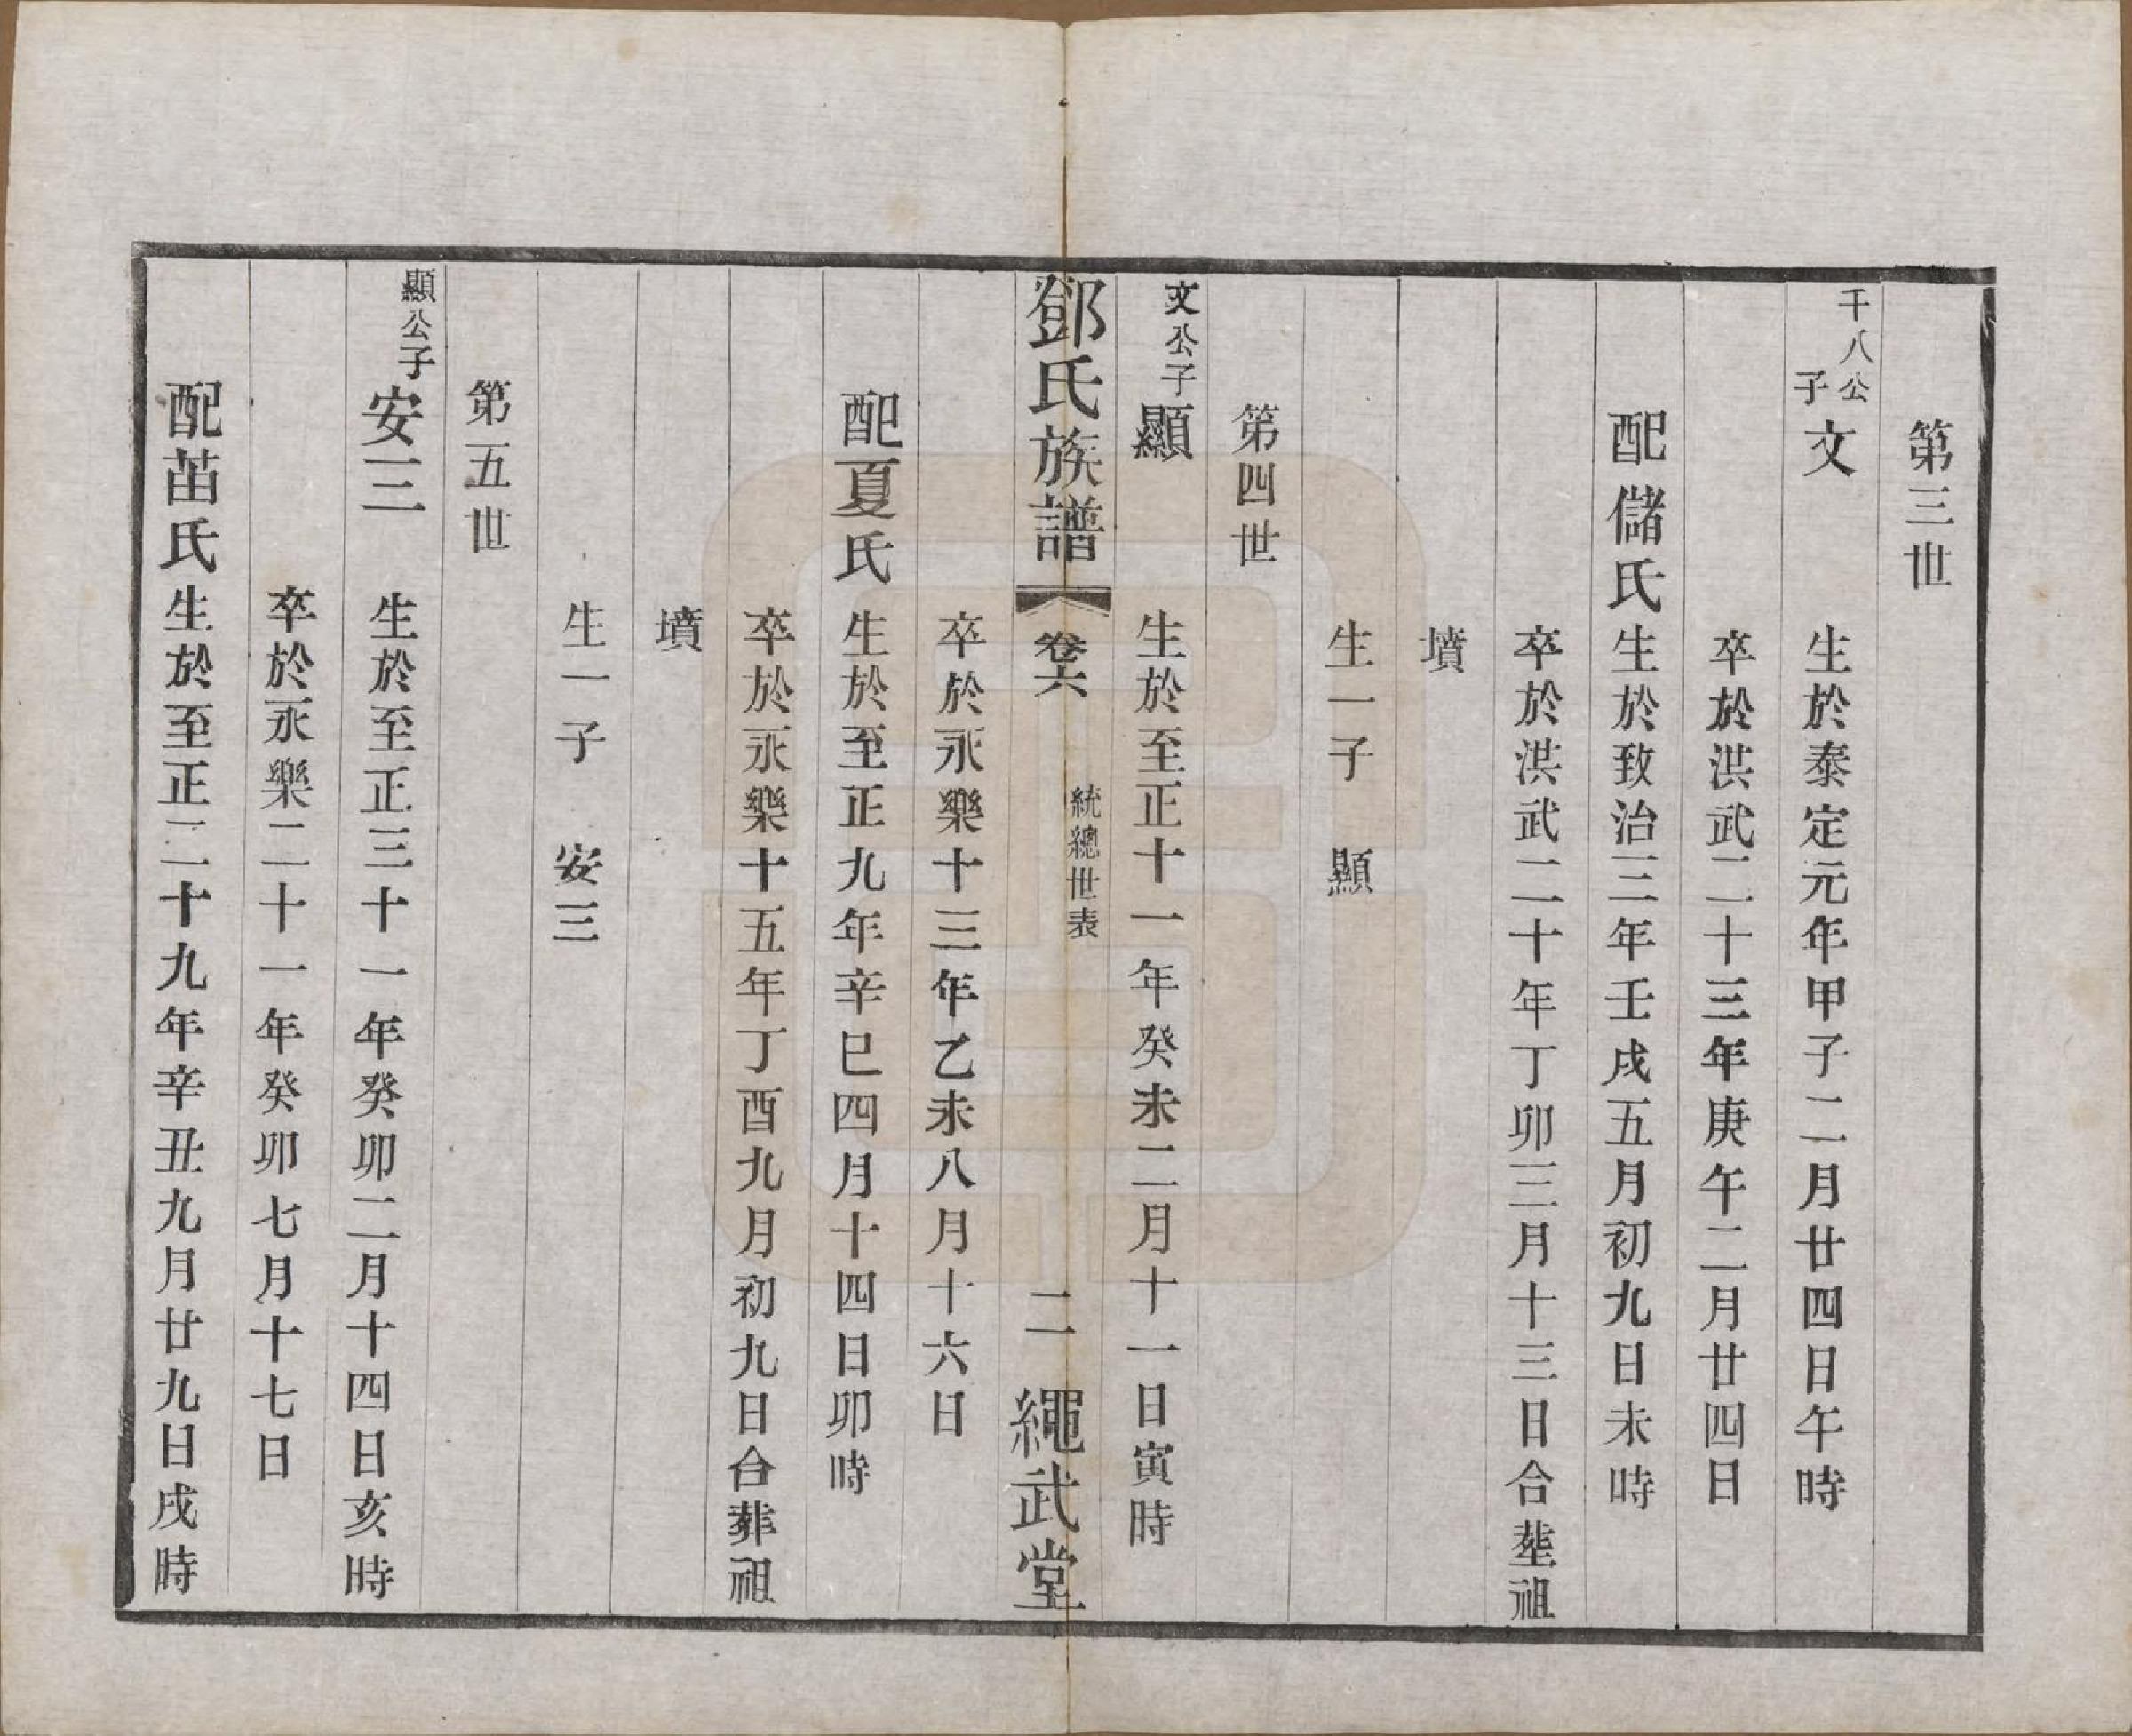 第三世
千八公子文 生於泰定元年甲子二月廿四日午時
卒於洪武二十三年庚午二月廿四日
配儲氏生於致治三年壬戌五月初九日未時
卒於洪武二十年丁卯三月十三日合塟祖
墳
生一子 顯
第四世
文公子顯 生於至正十一年癸未二月十一日寅時
鄧氏族譜 卷六 統總世表 二 繩武堂
卒於永樂十三年乙未八月十六日
配夏氏 生於至正九年辛巳四月十四日卯時
卒於永樂十五年丁酉九月初九日合葬祖
墳
生一子 安三
第五世
顯公子安三 生於至正三十一年癸卯二月十四日亥時
卒於永樂二十一年癸卯七月十七日
配苗氏生於至正二十九年辛丑九月廿九日戌時